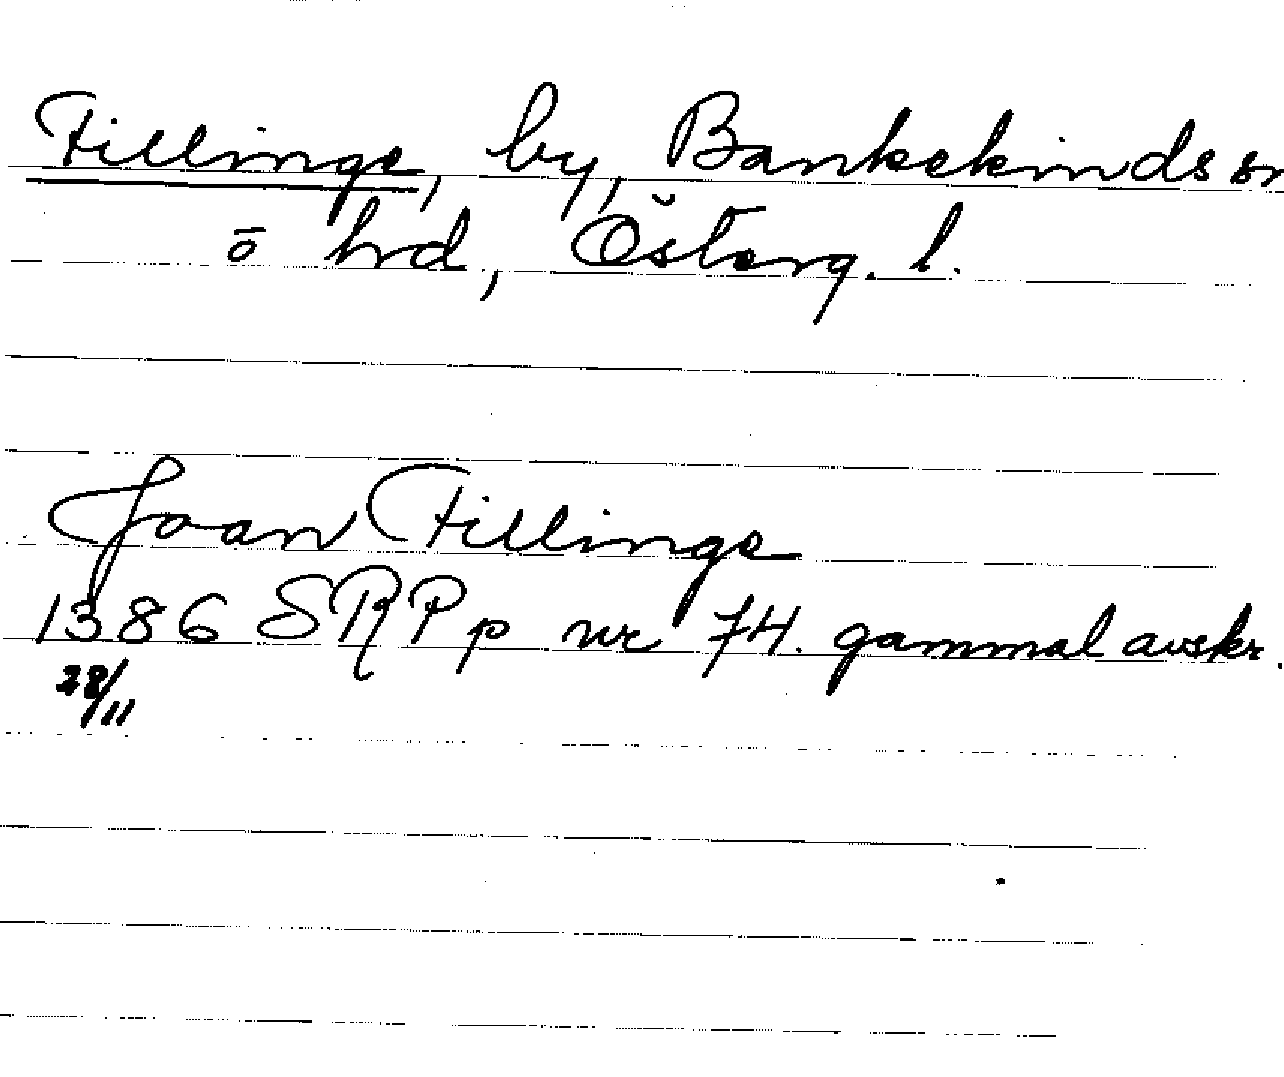 Fillinge, by, Bankekinds sn
o hrd, Österg. l.
Joan Fillinge
1386 SRPp nr 74. gammal avskr.
28/11